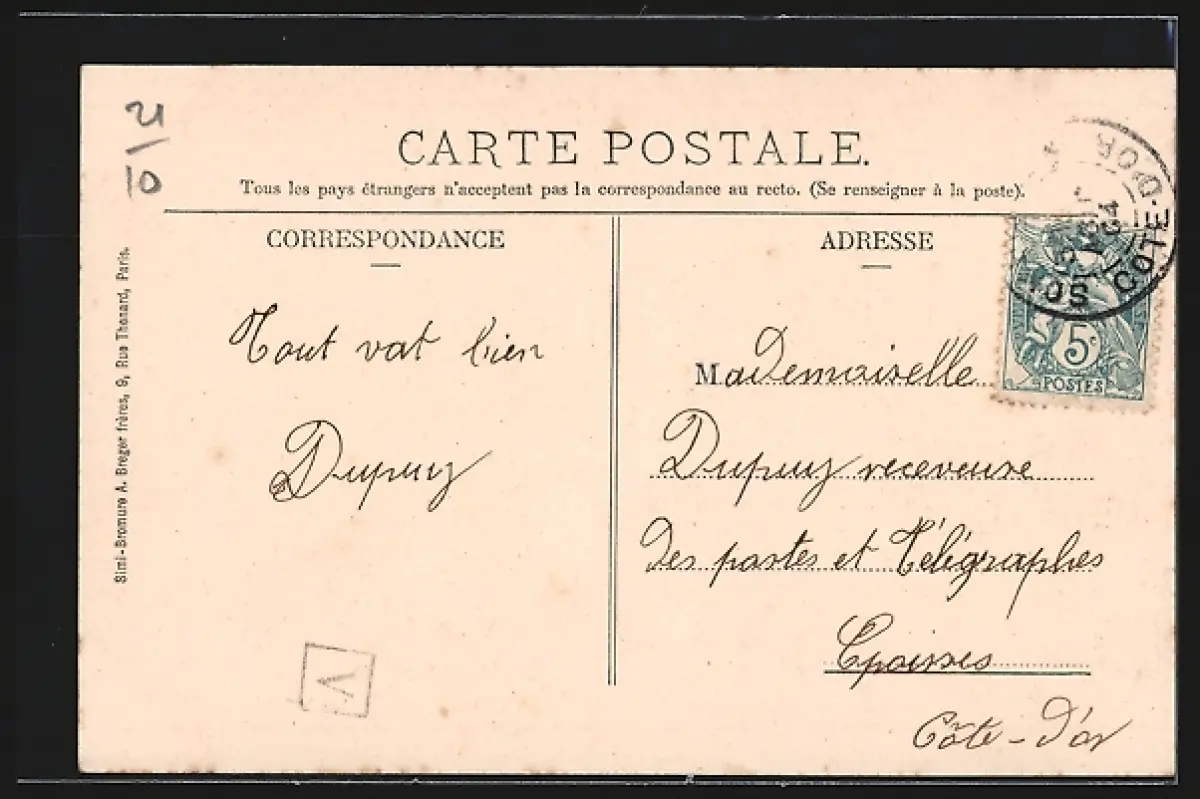 21
10
CARTE POSTALE.
Tous les pays étrangers n'acceptent pas la correspondance au recto. (Se renseigner à la poste).
CORRESPONDANCE
Tout vat bien
Dupuy
Simi-Bromure A. Breger frères, 9, Rue Thenard, Paris.
V
ADRESSE
Mademoiselle
Dupuy receveuse
des postes et Télégraphes
Epoisses
Côte-d'or
5c
POSTES
COTE-D'OR
04